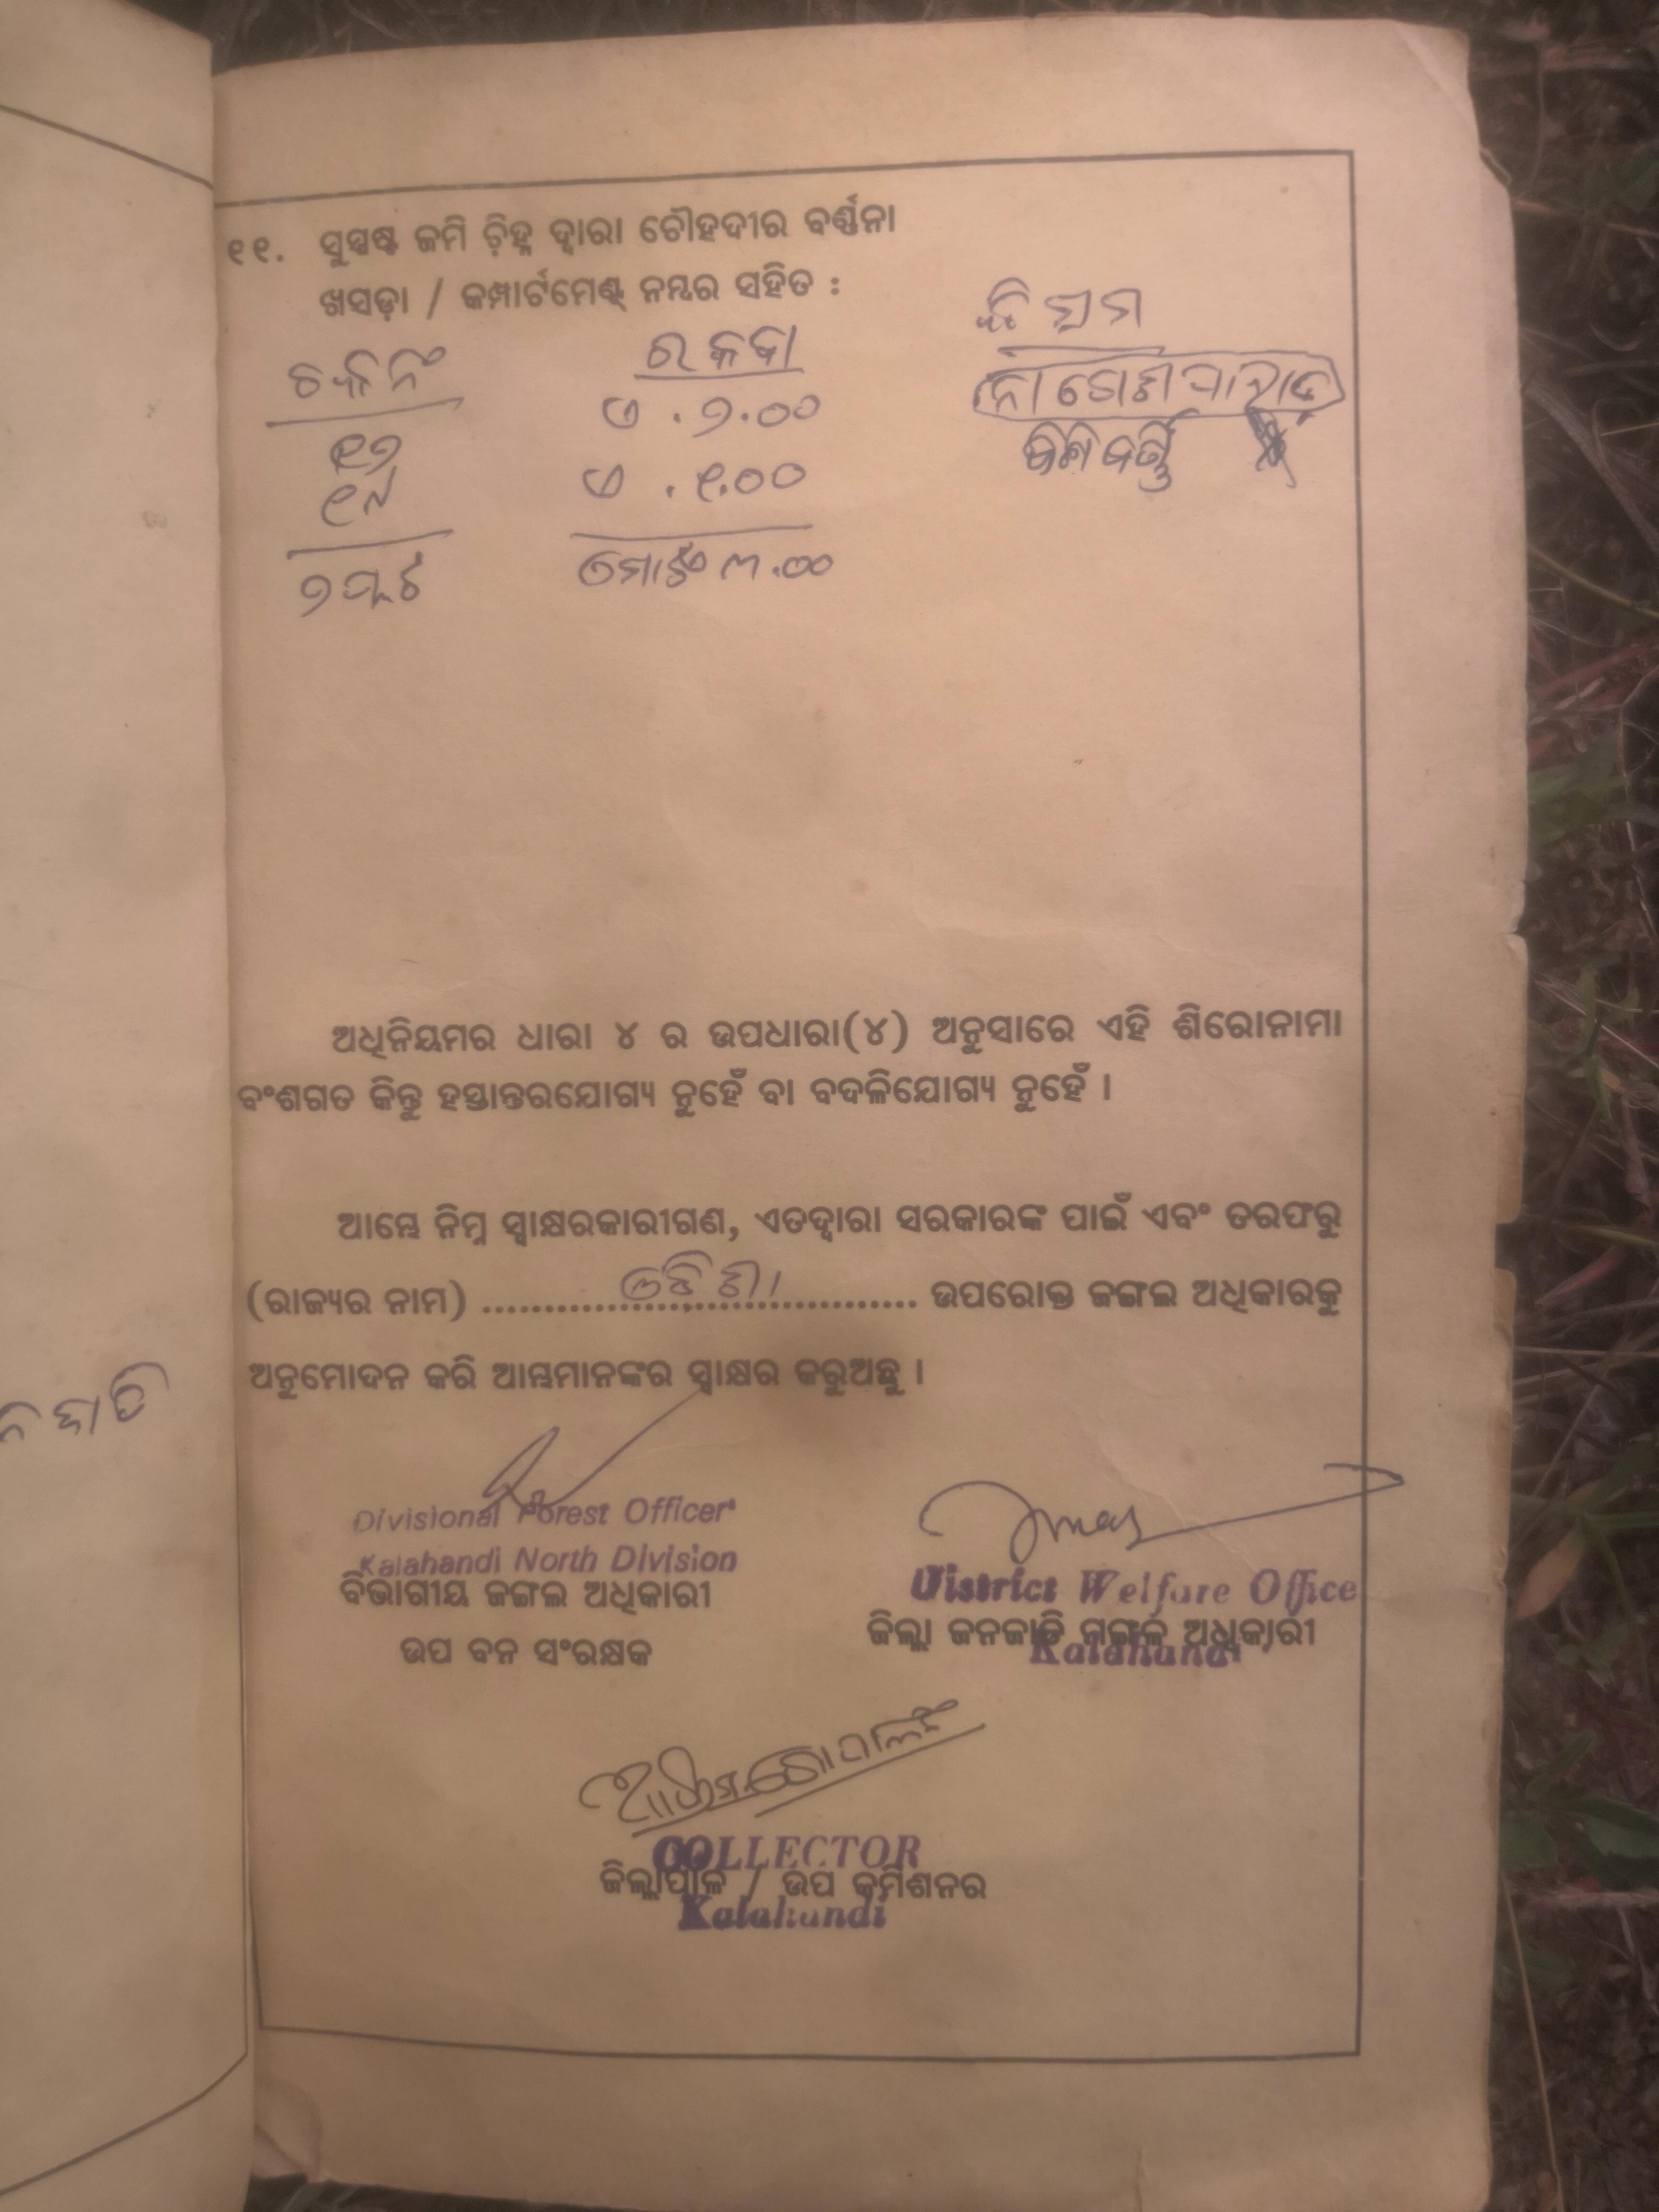 ୧୧. ସୁସ୍ପଷ୍ଟ ଜମି ଚ଼ିହ୍ନ ଦ୍ୱାରା ଚୌହଦୀର ବର୍ଣ୍ଣନା
ଖସଡ଼ା / କମ୍ପାର୍ଟମେଣ୍ଟ୍ ନମ୍ବର ସହିତ :
ରକବା କିସମ
୧୭ ଏ . ୨.୦୦
୧୯ ଏ . ୧.୦୦
୨ ପ୍ଲଟ ମୋଟ ୩.୦୦
ଅଧିନିୟମର ଧାରା ୪ ର ଉପଧାରା(୪) ଅନୁସାରେ ଏହି ଶିରୋନାମା
ବଂଶଗତ କିନ୍ତୁ ହସ୍ତାନ୍ତରଯୋଗ୍ୟ ନୁହେଁ ବା ବଦଳିଯୋଗ୍ୟ ନୁହେଁ ।
ଆମ୍ଭେ ନିମ୍ନ ସ୍ୱାକ୍ଷରକାରୀଗଣ, ଏତଦ୍ୱାରା ସରକାରଙ୍କ ପାଇଁ ଏବଂ ତରଫରୁ
(ରାଜ୍ୟର ନାମ) ........ଓଡିଶା........ ଉପରୋକ୍ତ ଜଙ୍ଗଲ ଅଧିକାରକୁ
ଅନୁମୋଦନ କରି ଆମ୍ଭମାନଙ୍କର ସ୍ୱାକ୍ଷର କରୁଅଛୁ ।
Divisional Forest Officer
Kalahandi North Division
ବିଭାଗୀୟ ଜଙ୍ଗଲ ଅଧିକାରୀ
ଉପ ବନ ସଂରକ୍ଷକ
District Welfare Office
ଜିଲ୍ଲା ଜନଜାତି ମଙ୍ଗଳ ଅଧିକାରୀ
Kalahandi
COLLECTOR
ଜିଲ୍ଲାପାଳ / ଉପ କମିଶନର
Kalahandi